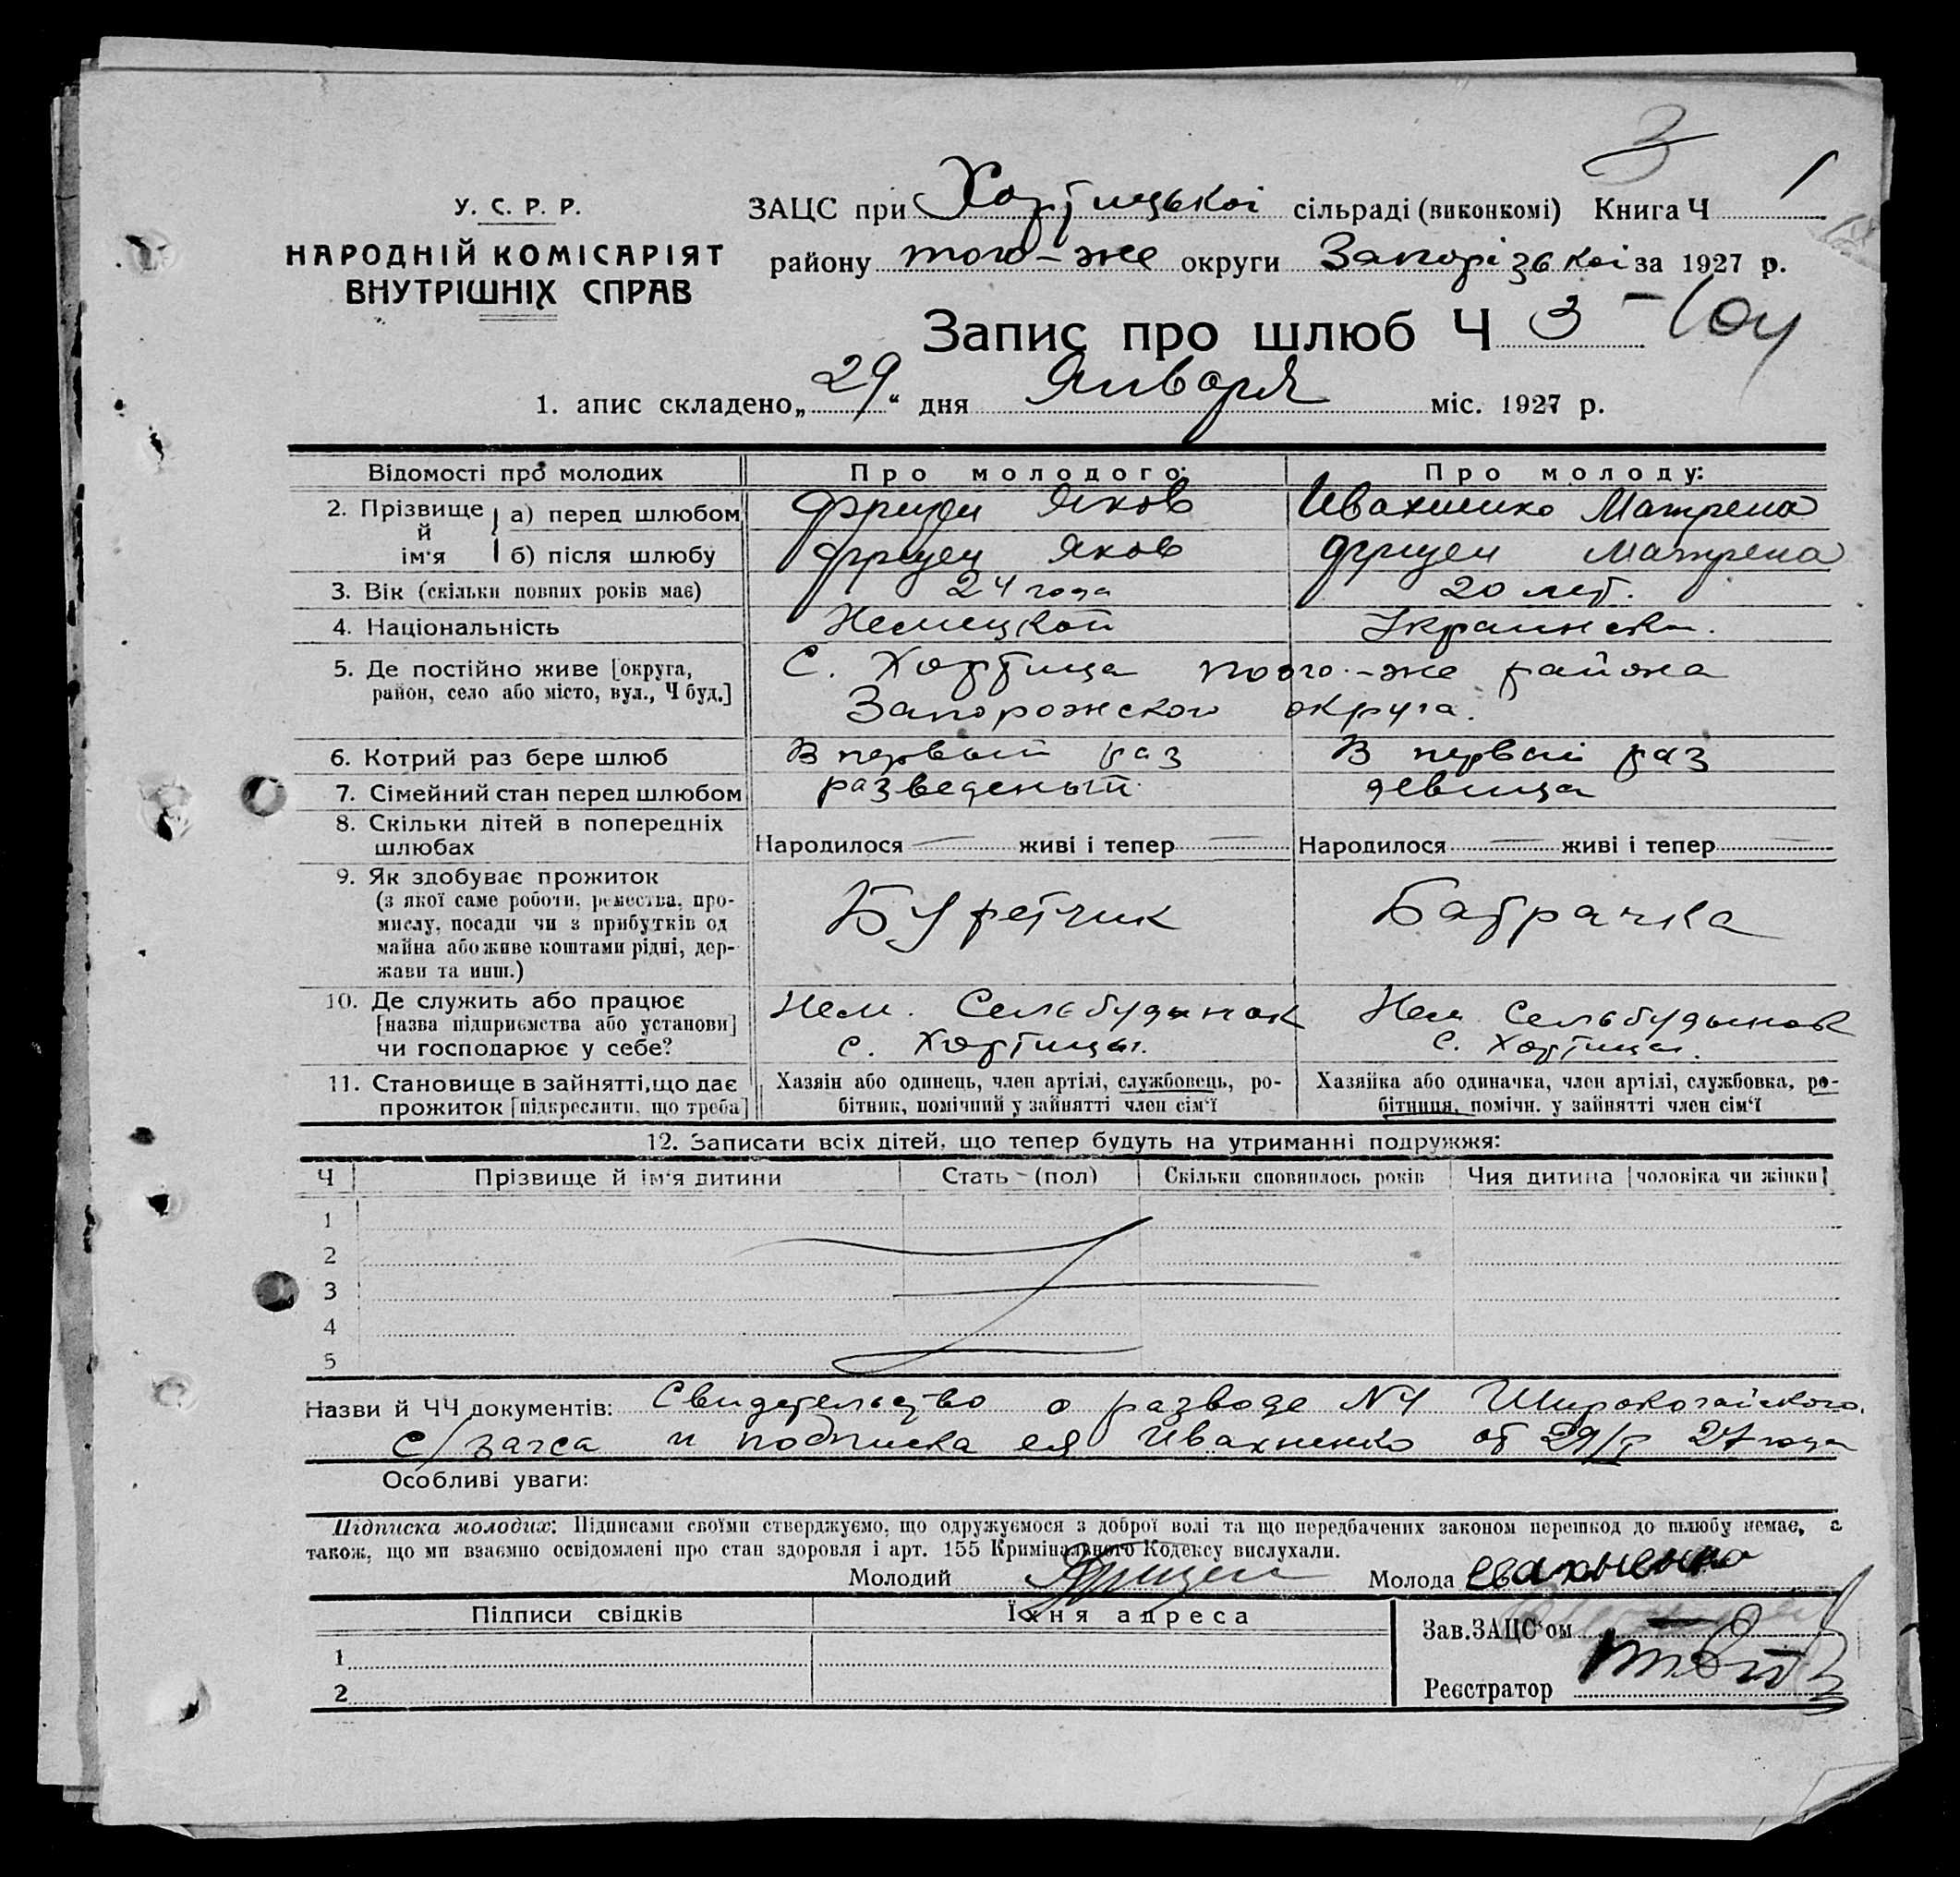 3
У. С. Р. Р.
НАРОДНІЙ КОМІСАРІЯТ
ВНУТРІШНІХ СПРАВ
ЗАЦС при Хортицької сільраді (виконкомі) Книга Ч 1
району того-же округи Запорізької за 1927 р.
Запис про шлюб Ч 3
1. апис складено „29“ дня Января міс. 1927 р.
Відомості про молодих Про молодого: Про молоду:
2. Прізвище й ім‘я а) перед шлюбом Фризен Яков Ивахненко Матрена
б) після шлюбу Фризен Яков Фризен Матрена
3. Вік (скільки повних років має) 24 года 20 лет.
4. Національність Немецкой Украинск.
5. Де постійно живе [округа, С. Хортица того-же района
район, село або місто, вул., Ч буд.] Запорожского округа.
6. Котрий раз бере шлюб В первый раз В первый раз
7. Сімейний стан перед шлюбом разведеный девица
8. Скільки дітей в попередніх
шлюбах Народилося — живі і тепер — Народилося — живі і тепер —
9. Як здобуває прожиток
(з якої саме роботи, ремества, про-
мислу, посади чи з прибутків од
майна або живе коштами рідні, дер-
жави та инш.) Буфетчик Батрачка
10. Де служить або працює Нем. Сельбудынок Нем. Сельбудынок
[назва підприємства або установи]
чи господарює у себе? с. Хортицы. с. Хортицы.
11. Становище в зайнятті, що дає Хазяін або одинець, член артілі, службовець, ро- Хазяйка або одиначка, член артілі, службовка, ро-
прожиток [підкреслити, що треба] бітник, помічний у зайнятті член сім‘ї бітниця, помічн. у зайнятті член сім‘ї
12. Записати всіх дітей, що тепер будуть на утриманні подружжя:
Ч Прізвище й ім‘я дитини Стать - (пол) Скільки сповнилось років Чия дитина [чоловіка чи жінки]
1
2
3
4
5
Назви й ЧЧ документів: Свидетельство о разводе №4 Широкогайского
с/загса и подписка ея Ивахненко от 29/I 27 года
Особливі уваги:
Підписка молодих: Підписами своїми стверджуємо, що одружуємося з доброї волі та що передбачених законом перешкод до шлюбу немає, а
також, що ми взаємно освідомлені про стан здоровля і арт. 155 Кримінального Кодексу вислухали.
Молодий Фризен Молода Ивахненко
Підписи свідків Їхня адреса
Зав.ЗАЦС‘ом
1
Реєстратор
2